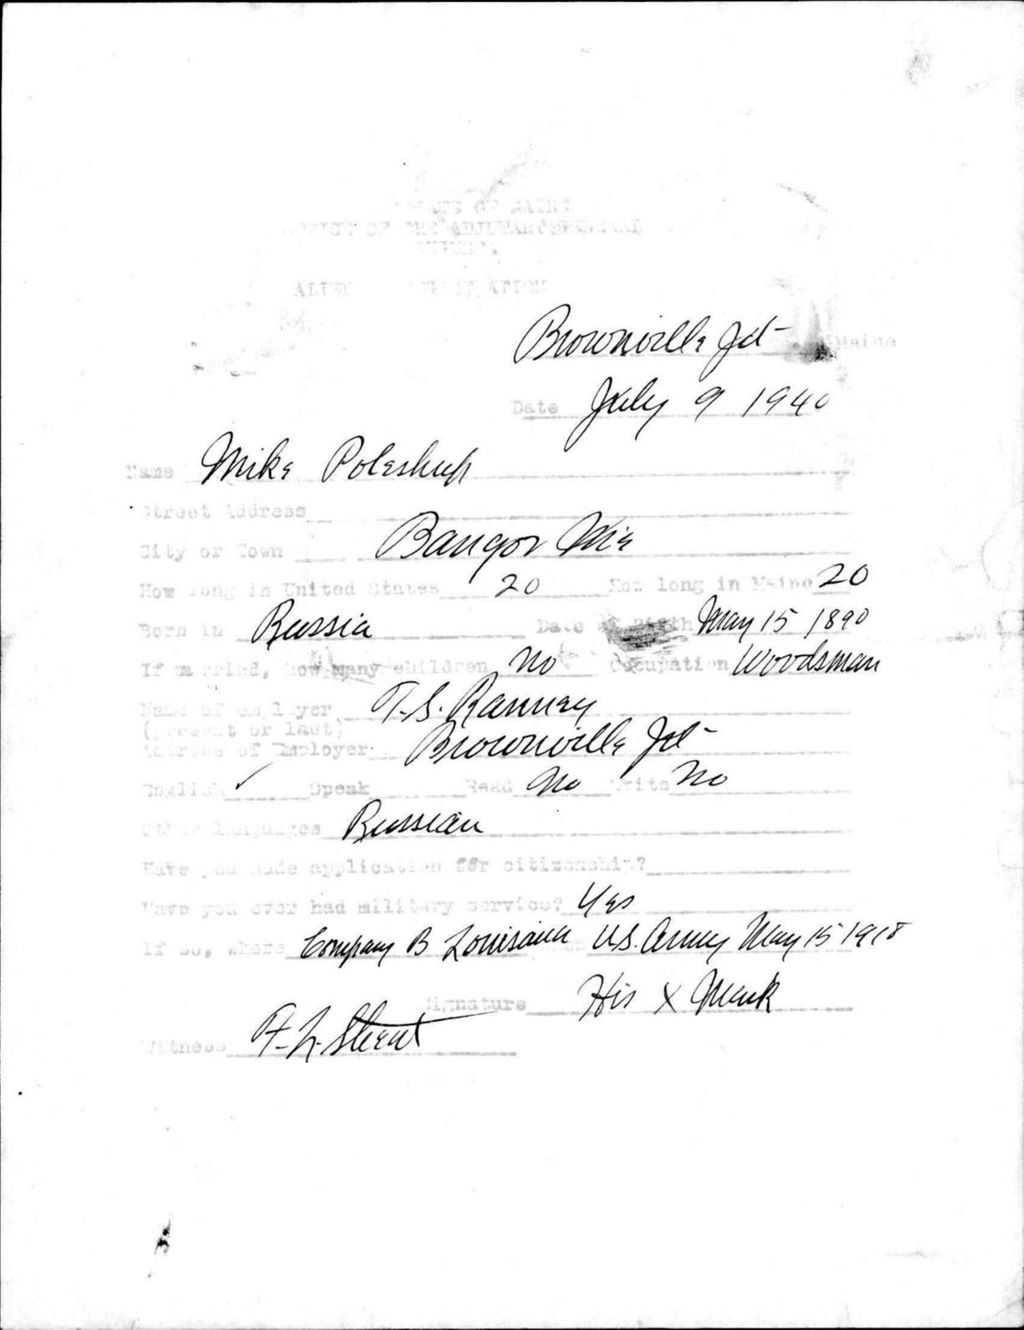 STATE OF MAINE
OFFICE OF THE ADJUTANT GENERAL
ALIEN REGISTRATION
Brownville Jct Maine
Date July 9 1940
Name Mike
Street Address
City or Town Bangor Me
How long in United States 20 How long in Maine 20
Born in Russia Date of Birth May 15 1890
If married, how many children No Occupation Woodsman
Name of employer T. S. Ranney
(present or last)
Address of Employer Brownville Jct
English ✓ Speak Read No Write No
Other languages Russian
Have you made application for citizenship?
Have you ever had military service? Yes
If so, where Company B Louisana U.S. Army May 15 1918
Signature His X Mark
Witness